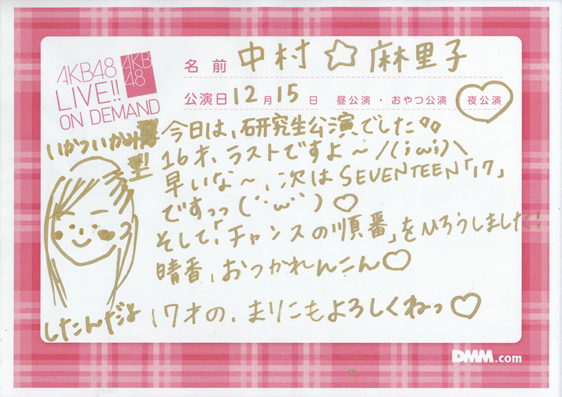 AKB48
LIVE!!
ON DEMAND
AKB
48
名前 中村☆麻里子
公演日 12月15日 昼公演・おやつ公演 夜公演
いがついがみ
型
今日は、研究生公演でした
16才、ラストですよ〜/(;ω;)\
早いな〜、次はSEVENTEEN「17」
ですっっ(¨ω¨)♡
そして、「チャンスの順番」をひろうしました!
晴香、おつかれんこん♡
したんだよ
17才の、まりこもよろしくねっ♡
DMM.com